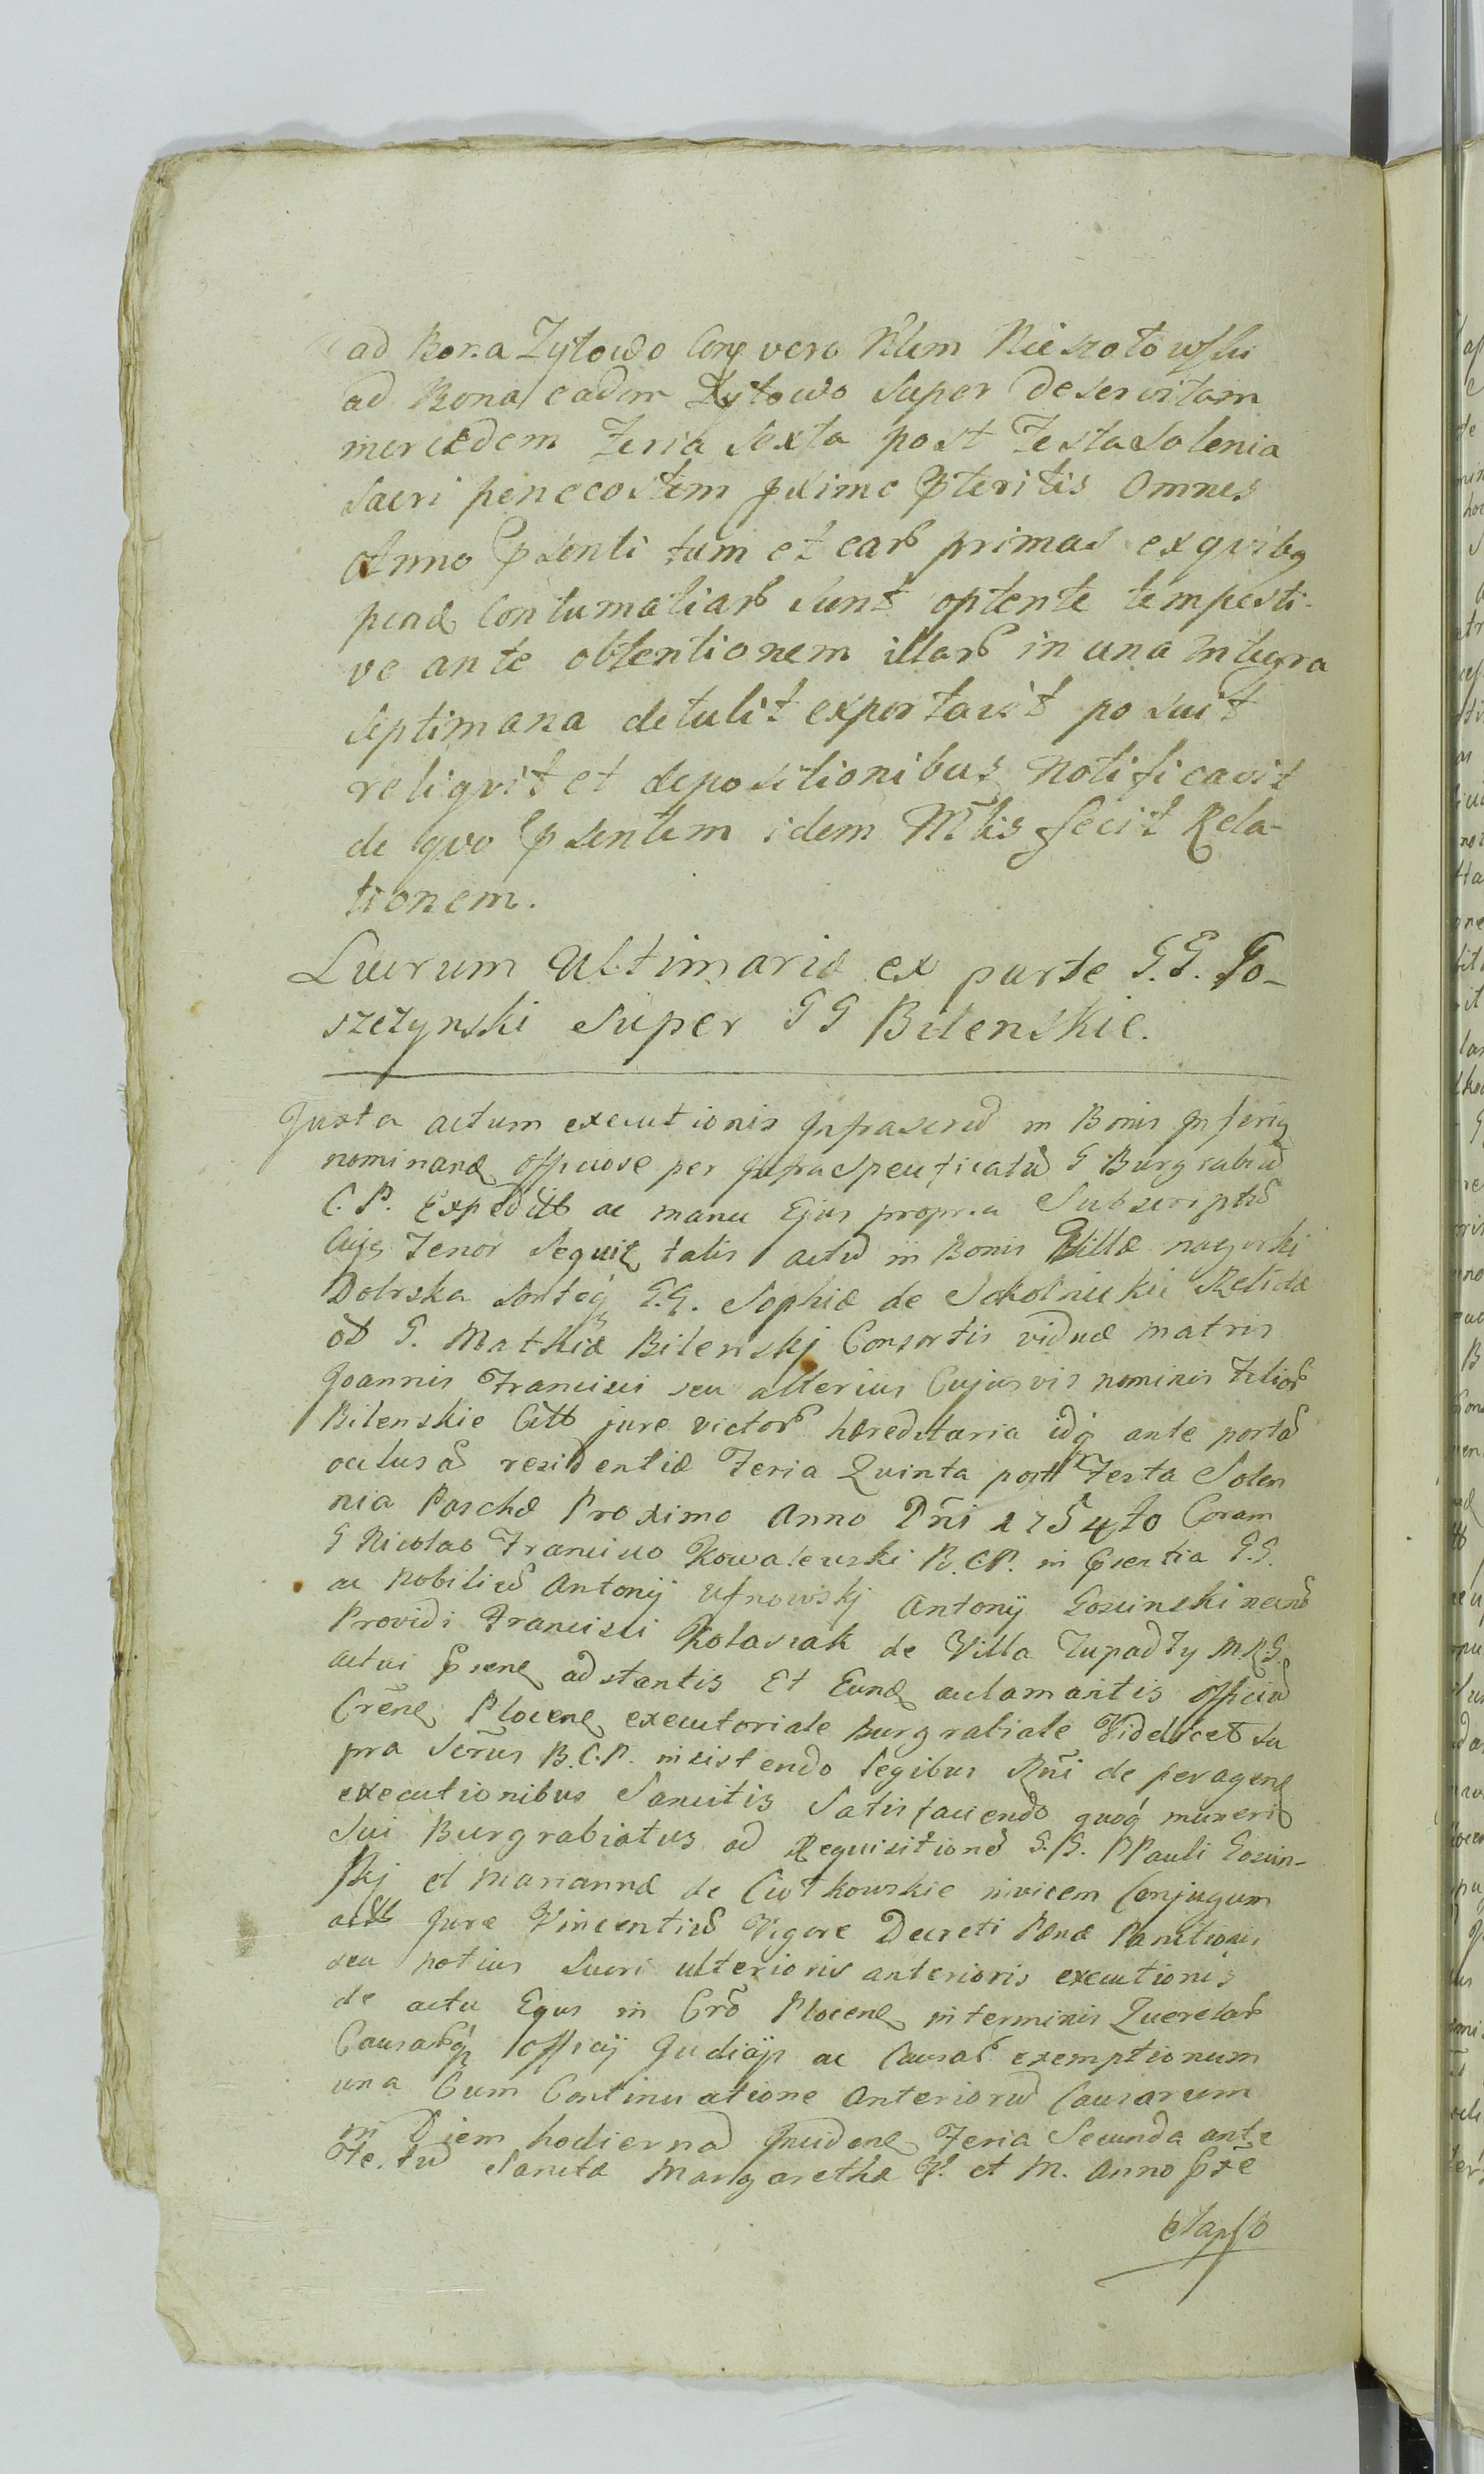 ad Bona Zytowo Conq vero Nlem Nieszotowski
ad Bona eadem Zytowo Super deservitam
mercedem Feria Sexta post Festa Solenia
Sacri penecostem pximo Pteritis Omnes
Anno Psenti tum et earb primas exqvibq
penæ Contumatiarb Sunt optente tempesti-
ve ante obtentionem illarb in una Integra
Septimana detulit exportavit posuit
reliqvit et depositionibus notificavit
de qvo Psentem idem Mtlis fecit Rela-
tionem.
Lucrum Ultimariæ ex parte G.G. Go-
szczynski Super GG Bilenskie.
Juxta actum executionis Infrascrū in Bonis Inferiq
nominanæ officiose per Infraspecificatū G Burgrabiū
C. P. Expeditb ac manu Ejus propria Subscriptū
Cujq Tenor Sequit talis actū in Bonis Villæ nagorki
Dobrska Sorteq G.G. Sophiæ de Sokolnickie Relictæ
ol G. Mathiæ Bilenskj Consortis viduæ matris
Joannis Francisci seu alterius Cujusvis nominis Filiorb
Bilenskie Cittb jure victorb hæreditaria idq ante portā
oclusā residentiæ Feria Quinta post Festa Solen
nia Paschæ Proximo Anno Dñi 1754to Coram
G Nicolao Francisco Kowalewski B.C.P. in Psentia G.G.
ac Nobiliū Antonij Ufnowskj Antonij Goscinski necnō
Providi Francisci Kolasiak de Villa Zupadły M.R.G.
actui Psenq adstantis Et Eunq aclamantis officiū
Crēnq Plocenq executoriale Burgrabiale Videlicet Su
pra Scrūs B.C.P. insistendo legibus Rñi de peragenq
executionibus Sancitis Satisfaciendo quoq muneriq
Sui Burgrabiatus ad Requisitionē G.G. PPauli Goscin-
skj et Mariannæ de Ciotkowskie invicem Conjugum
actb Jure Vincentiū Vigore Decreti Pœnæ Banitionis
seu potius Lucri ulterioris anterioris executionis
de actu Ejus in Crō Plocenq in terminis Querelarb
Causarbq officij Judicijs ac Causarb exemptionum
una Cum Continuatione Anteriorū Causarum
in Diem hodiernā Incidenq Feria Secunda ante
Festū Sanctæ Margarethæ V. et M. Anno Pxē
elapso